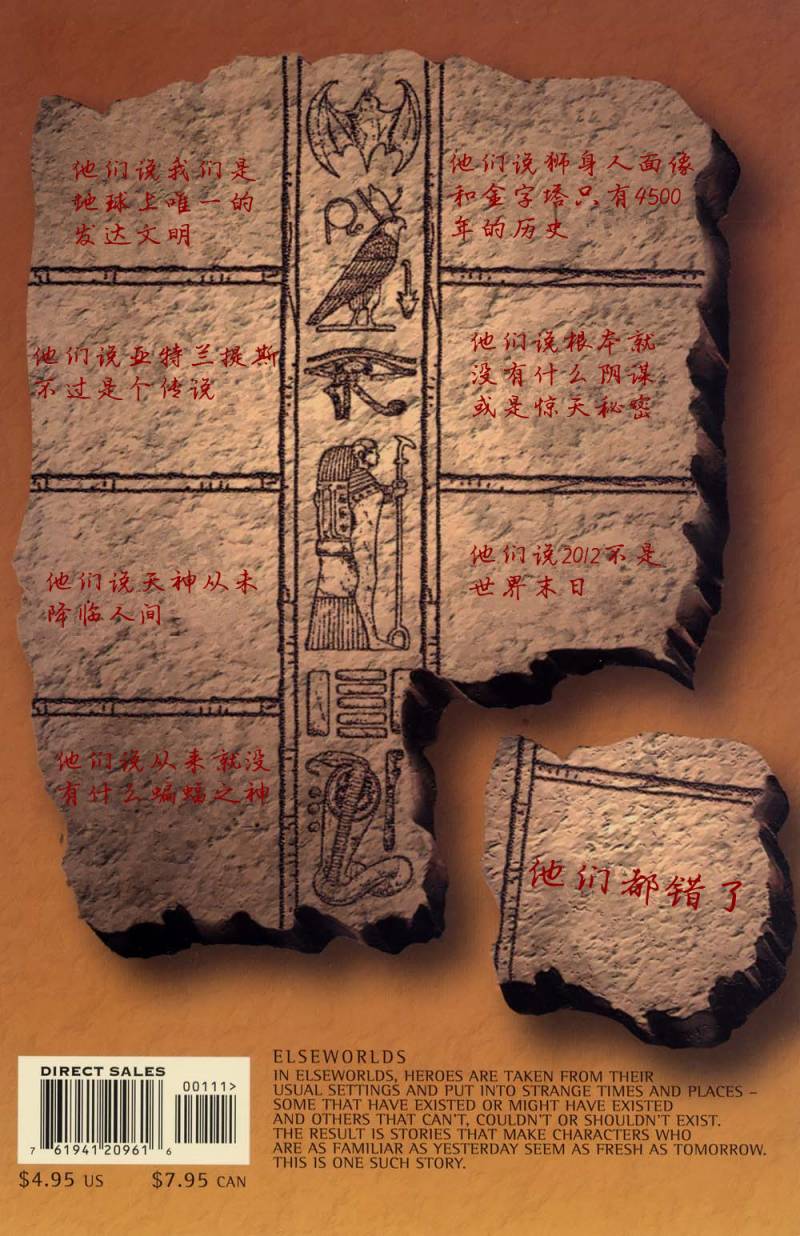 他们说我们是
地球上唯一的
发达文明
他们说狮身人面像
和金字塔只有4500
年的历史
他们说亚特兰提斯
不过是个传说
他们说根本就
没有什么阴谋
或是惊天秘密
他们说天神从未
降临人间
他们说2012不是
世界末日
他们说从来就没
有什么蝙蝠之神
他们都错了
DIRECT SALES
00111>
7 61941 20961 6
$4.95 US $7.95 CAN
ELSEWORLDS
IN ELSEWORLDS, HEROES ARE TAKEN FROM THEIR
USUAL SETTINGS AND PUT INTO STRANGE TIMES AND PLACES –
SOME THAT HAVE EXISTED OR MIGHT HAVE EXISTED
AND OTHERS THAT CAN'T, COULDN'T OR SHOULDN'T EXIST.
THE RESULT IS STORIES THAT MAKE CHARACTERS WHO
ARE AS FAMILIAR AS YESTERDAY SEEM AS FRESH AS TOMORROW.
THIS IS ONE SUCH STORY.